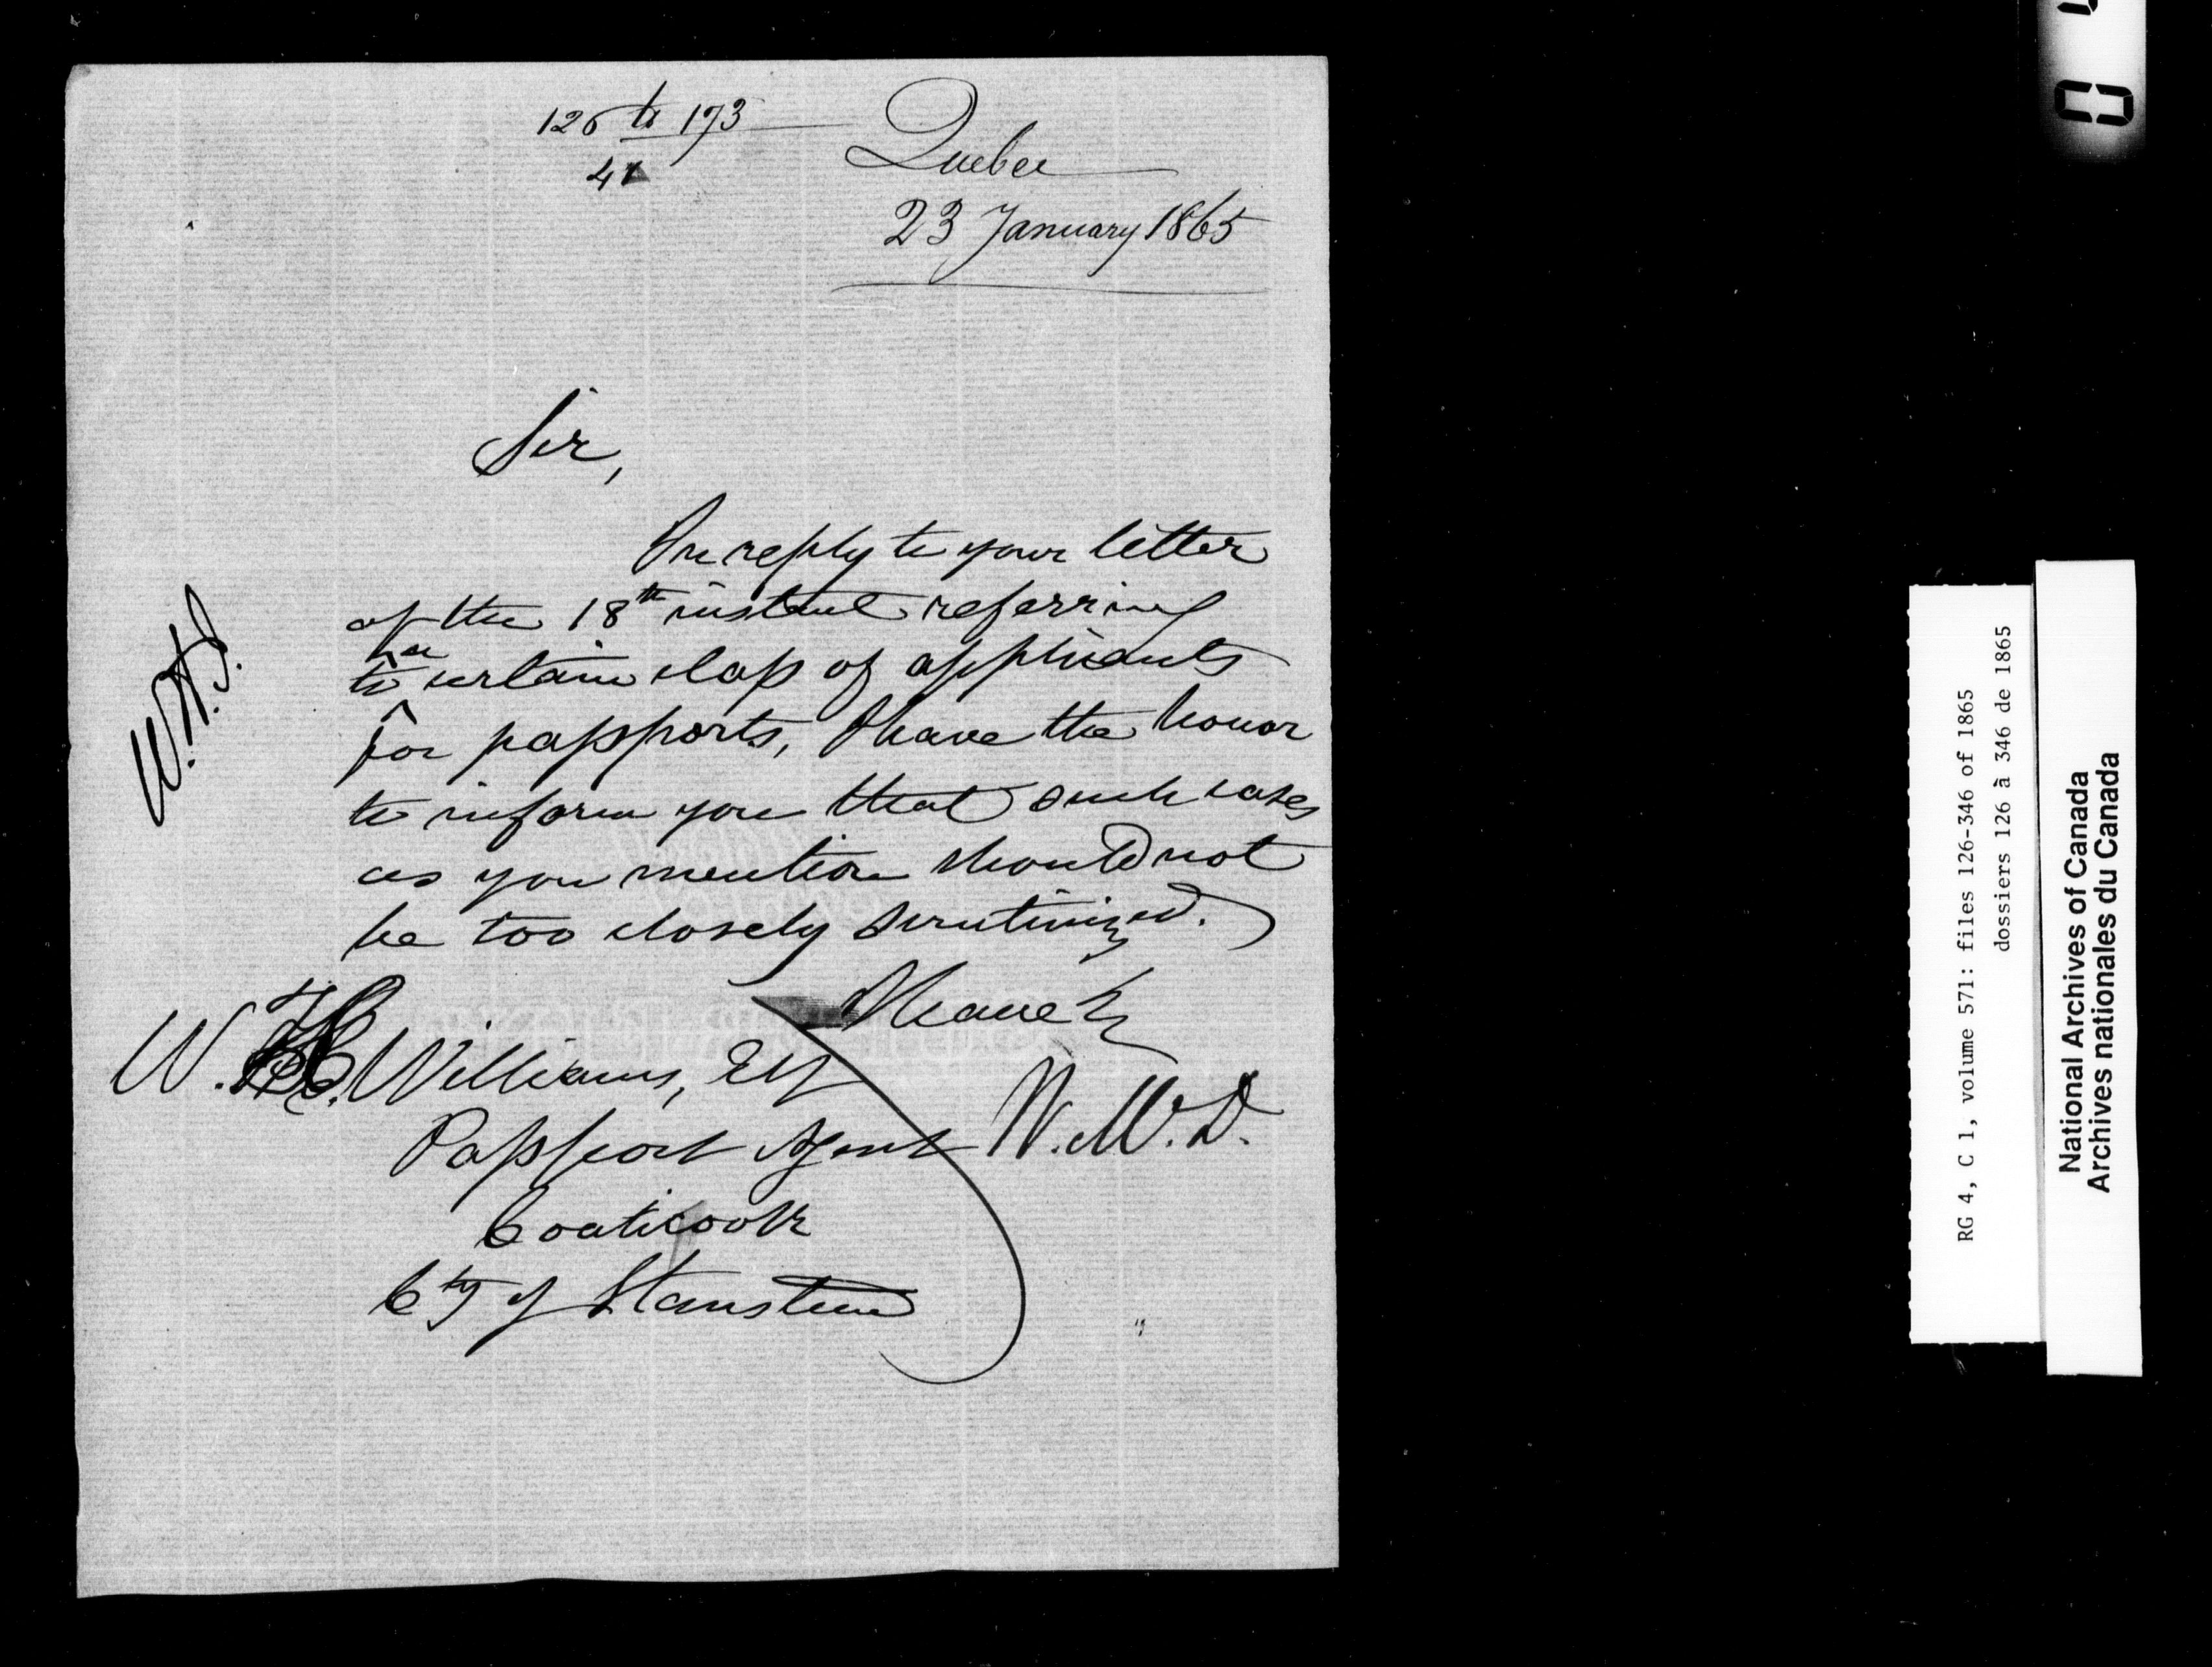 126 to 173
41
Quebec
23 January 1865
Sir,
In reply to your letter
of the 18th instant referring
to a certain class of applicants
for passports, I have the honor
to inform you that such cases
as you mention should not
be too closely scrutinized.
I have &c
W. Williams, Esq
Passport Agent
W. M. D.
Coaticook
Cty of Stanstead
RG 4, C 1, volume 571: files 126-346 of 1865
dossiers 126 à 346 de 1865
National Archives of Canada
Archives nationales du Canada